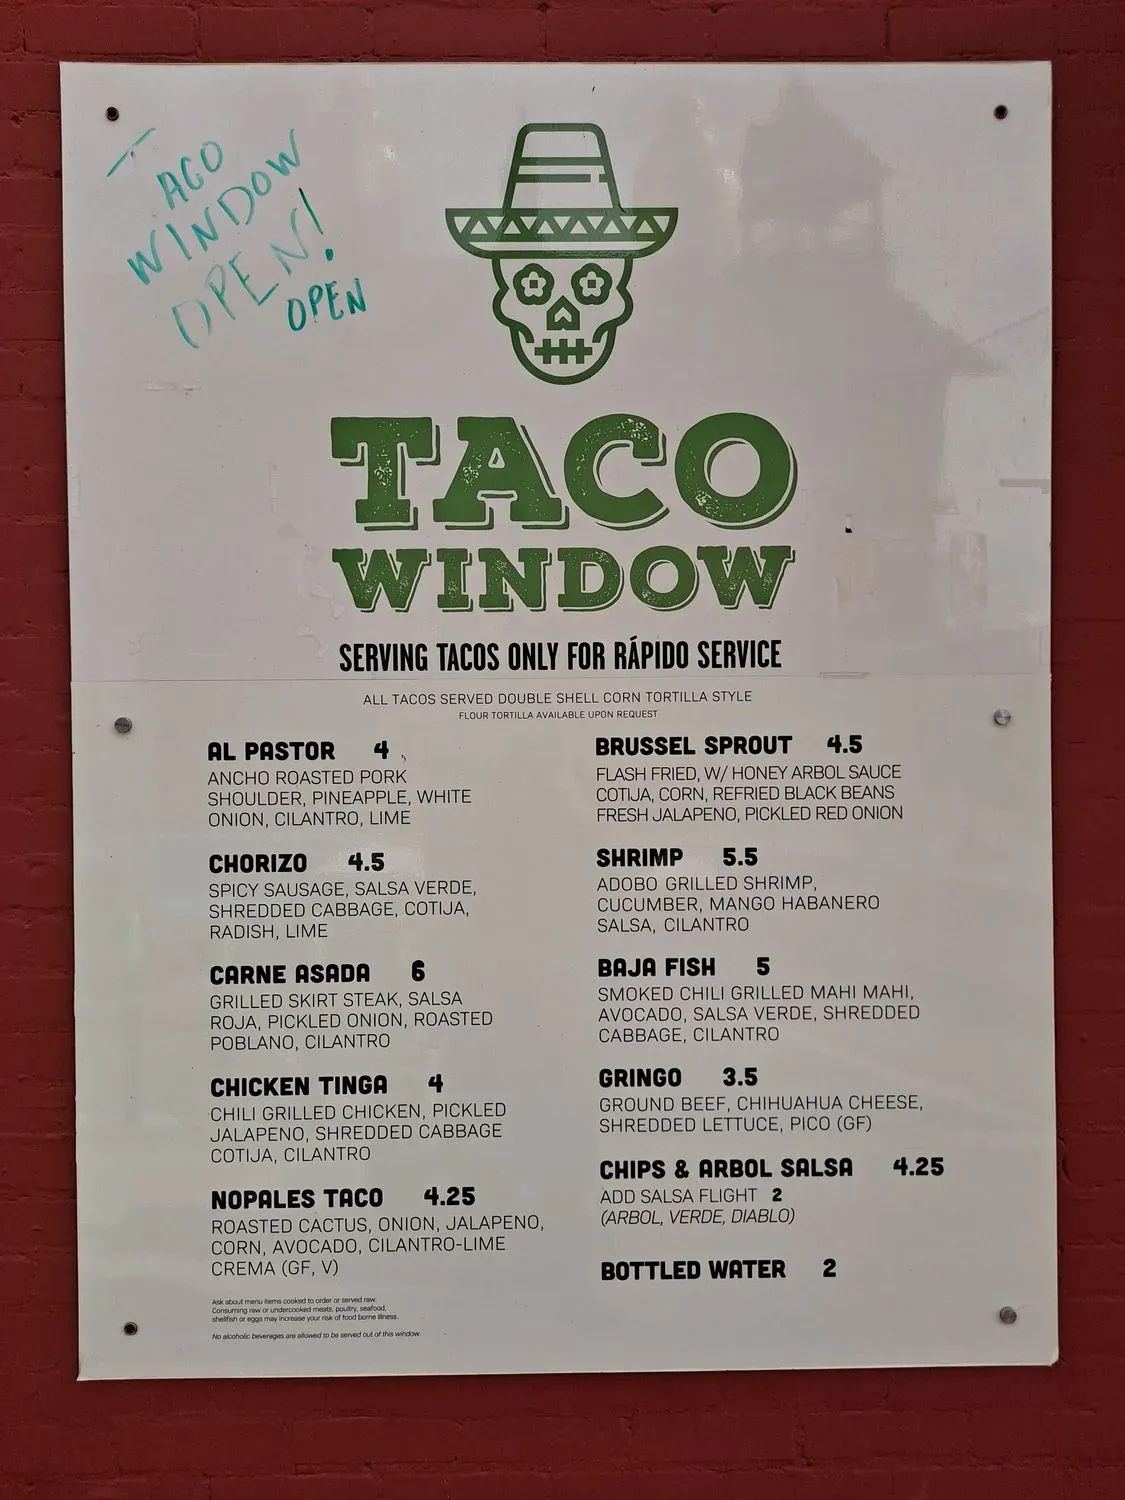 TACO
WINDOW
OPEN!
OPEN
TACO
WINDOW
SERVING TACOS ONLY FOR RÁPIDO SERVICE
ALL TACOS SERVED DOUBLE SHELL CORN TORTILLA STYLE
FLOUR TORTILLA AVAILABLE UPON REQUEST
AL PASTOR 4
ANCHO ROASTED PORK
SHOULDER, PINEAPPLE, WHITE
ONION, CILANTRO, LIME
CHORIZO 4.5
SPICY SAUSAGE, SALSA VERDE,
SHREDDED CABBAGE, COTIJA,
RADISH, LIME
CARNE ASADA 6
GRILLED SKIRT STEAK, SALSA
ROJA, PICKLED ONION, ROASTED
POBLANO, CILANTRO
CHICKEN TINGA 4
CHILI GRILLED CHICKEN, PICKLED
JALAPENO, SHREDDED CABBAGE
COTIJA, CILANTRO
NOPALES TACO 4.25
ROASTED CACTUS, ONION, JALAPENO,
CORN, AVOCADO, CILANTRO-LIME
CREMA (GF, V)
Ask about menu items cooked to order or served raw.
Consuming raw or undercooked meats, poultry, seafood,
shellfish or eggs may increase your risk of food borne illness.
No alcoholic beverages are allowed to be served out of this window.
BRUSSEL SPROUT 4.5
FLASH FRIED, W/ HONEY ARBOL SAUCE
COTIJA, CORN, REFRIED BLACK BEANS
FRESH JALAPENO, PICKLED RED ONION
SHRIMP 5.5
ADOBO GRILLED SHRIMP,
CUCUMBER, MANGO HABANERO
SALSA, CILANTRO
BAJA FISH 5
SMOKED CHILI GRILLED MAHI MAHI,
AVOCADO, SALSA VERDE, SHREDDED
CABBAGE, CILANTRO
GRINGO 3.5
GROUND BEEF, CHIHUAHUA CHEESE,
SHREDDED LETTUCE, PICO (GF)
CHIPS & ARBOL SALSA 4.25
ADD SALSA FLIGHT 2
(ARBOL, VERDE, DIABLO)
BOTTLED WATER 2